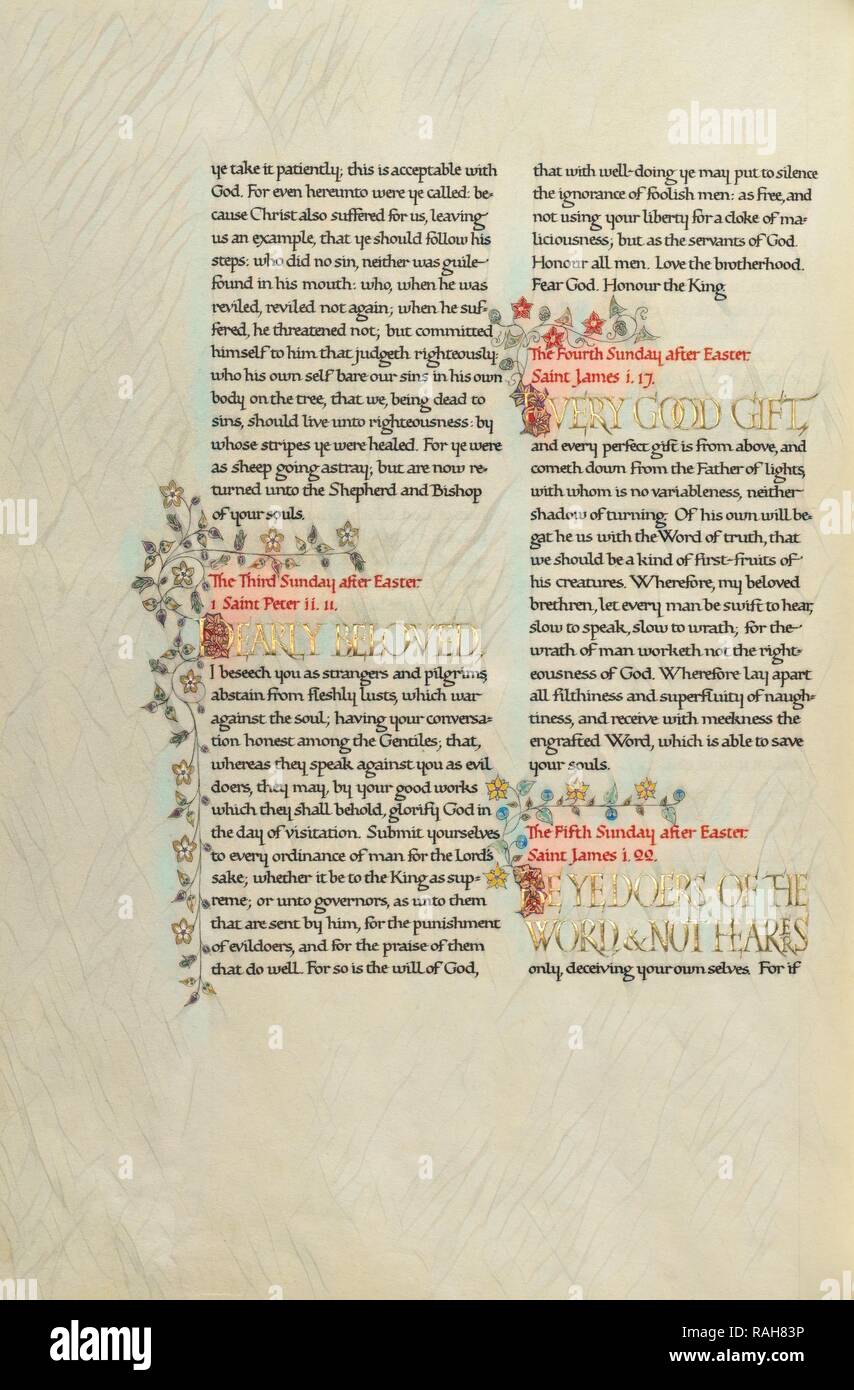 ye take it patiently; this is acceptable with
God. For even hereunto were ye called: be=
cause Christ also suffered for us, leaving
us an example, that ye should follow his
steps: who did no sin, neither was guile
found in his mouth: who, when he was
reviled, reviled not again; when he suf=
fered, he threatened not; but committed
himself to him that judgeth righteously:
who his own self bare our sins in his own
body on the tree, that we, being dead to
sins, should live unto righteousness: by
whose stripes ye were healed. For ye were
as sheep going astray; but are now re=
turned unto the Shepherd and Bishop
of your souls.
The Third Sunday after Easter.
1 Saint Peter ii. 11.
DEARLY BELOVED,
I beseech you as strangers and pilgrims,
abstain from fleshly lusts, which war
against the soul; having your conversa=
tion honest among the Gentiles; that,
whereas they speak against you as evil
doers, they may, by your good works
which they shall behold, glorify God in
the day of visitation. Submit yourselves
to every ordinance of man for the Lord's
sake; whether it be to the King as sup=
reme; or unto governors, as unto them
that are sent by him, for the punishment
of evildoers, and for the praise of them
that do well. For so is the will of God,
that with well-doing ye may put to silence
the ignorance of foolish men: as free, and
not using your liberty for a cloke of ma=
liciousness; but as the servants of God.
Honour all men. Love the brotherhood.
Fear God. Honour the King.
The Fourth Sunday after Easter.
Saint James i. 17.
EVERY GOOD GIFT,
and every perfect gift is from above, and
cometh down from the Father of lights,
with whom is no variableness, neither
shadow of turning. Of his own will be=
gat he us with the Word of truth, that
we should be a kind of first-fruits of
his creatures. Wherefore, my beloved
brethren, let every man be swift to hear,
slow to speak, slow to wrath; for the
wrath of man worketh not the right=
eousness of God. Wherefore lay apart
all filthiness and superfluity of naugh=
tiness, and receive with meekness the
engrafted Word, which is able to save
your souls.
The Fifth Sunday after Easter.
Saint James i. 22.
BE YE DOERS OF THE
WORD, & NOT HEARERS
only, deceiving your own selves. For if
alamy
Image ID: RAH83P
www.alamy.com